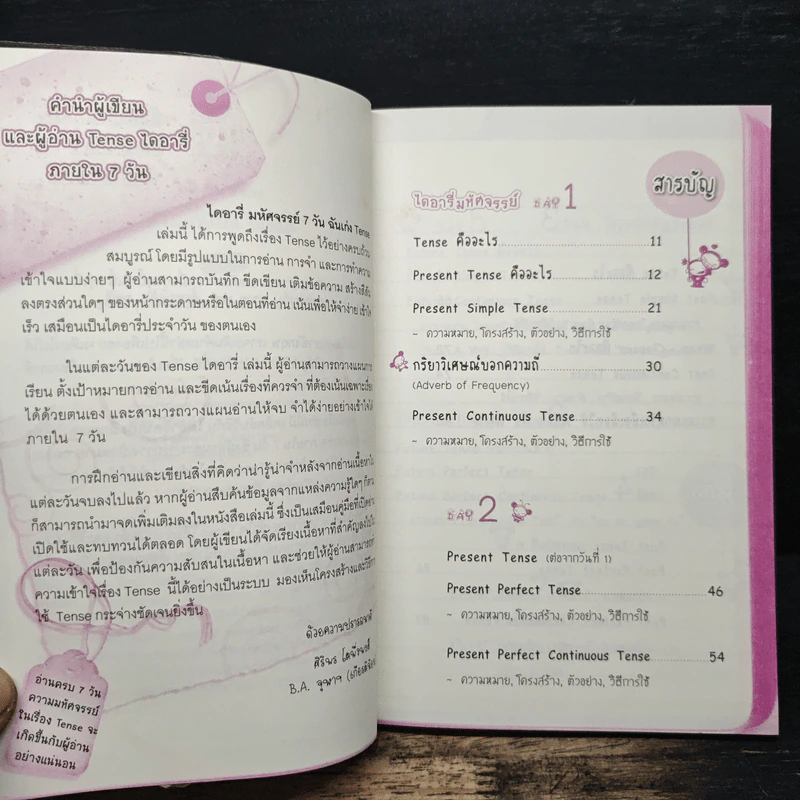 คำนำผู้เขียน
และผู้อ่าน Tense ไดอารี่
ภายใน 7 วัน
ไดอารี่ มหัศจรรย์ 7 วัน ฉันเก่ง Tense
เล่มนี้ ได้การพูดถึงเรื่อง Tense ไว้อย่างครบถ้วน
สมบูรณ์ โดยมีรูปแบบในการอ่าน การจำ และการทำความ
เข้าใจแบบง่ายๆ ผู้อ่านสามารถบันทึก ขีดเขียน เติมข้อความ สร้างสีสัน
ลงตรงส่วนใดๆ ของหน้ากระดาษหรือในตอนที่อ่าน เน้นเพื่อให้จำง่าย เข้าใจ
เร็ว เสมือนเป็นไดอารี่ประจำวัน ของตนเอง
ในแต่ละวันของ Tense ไดอารี่ เล่มนี้ ผู้อ่านสามารถวางแผนการ
เรียน ตั้งเป้าหมายการอ่าน และขีดเน้นเรื่องที่ควรจำ ที่ต้องเน้นเฉพาะเรื่อง
ได้ด้วยตนเอง และสามารถวางแผนอ่านให้จบ จำได้ง่ายอย่างเข้าใจได้
ภายใน 7 วัน
การฝึกอ่านและเขียนสิ่งที่คิดว่าน่ารู้น่าจำหลังจากอ่านเนื้อหาใน
แต่ละวันจบลงไปแล้ว หากผู้อ่านสืบค้นข้อมูลจากแหล่งความรู้ใดๆ ก็ตาม
ก็สามารถนำมาจดเพิ่มเติมลงในหนังสือเล่มนี้ ซึ่งเป็นเสมือนคู่มือที่เปิดอ่าน
เปิดใช้และทบทวนได้ตลอด โดยผู้เขียนได้จัดเรียงเนื้อหาที่สำคัญลงไปใน
แต่ละวัน เพื่อป้องกันความสับสนในเนื้อหา และช่วยให้ผู้อ่านสามารถทำ
ความเข้าใจเรื่อง Tense นี้ได้อย่างเป็นระบบ มองเห็นโครงสร้างและวิธีการ
ใช้ Tense กระจ่างชัดเจนยิ่งขึ้น
ด้วยความปรารถนาดี
ศิริพร
B.A. จุฬาฯ (เกียรตินิยม)
อ่านครบ 7 วัน
ความมหัศจรรย์
ในเรื่อง Tense จะ
เกิดขึ้นกับผู้อ่าน
อย่างแน่นอน
สารบัญ
ไดอารี่มหัศจรรย์ DAY 1
Tense คืออะไร 11
Present Tense คืออะไร 12
Present Simple Tense 21
~ ความหมาย, โครงสร้าง, ตัวอย่าง, วิธีการใช้
กริยาวิเศษณ์บอกความถี่ 30
(Adverb of Frequency)
Present Continuous Tense 34
~ ความหมาย, โครงสร้าง, ตัวอย่าง, วิธีการใช้
DAY 2
Present Tense (ต่อจากวันที่ 1)
Present Perfect Tense 46
~ ความหมาย, โครงสร้าง, ตัวอย่าง, วิธีการใช้
Present Perfect Continuous Tense 54
~ ความหมาย, โครงสร้าง, ตัวอย่าง, วิธีการใช้